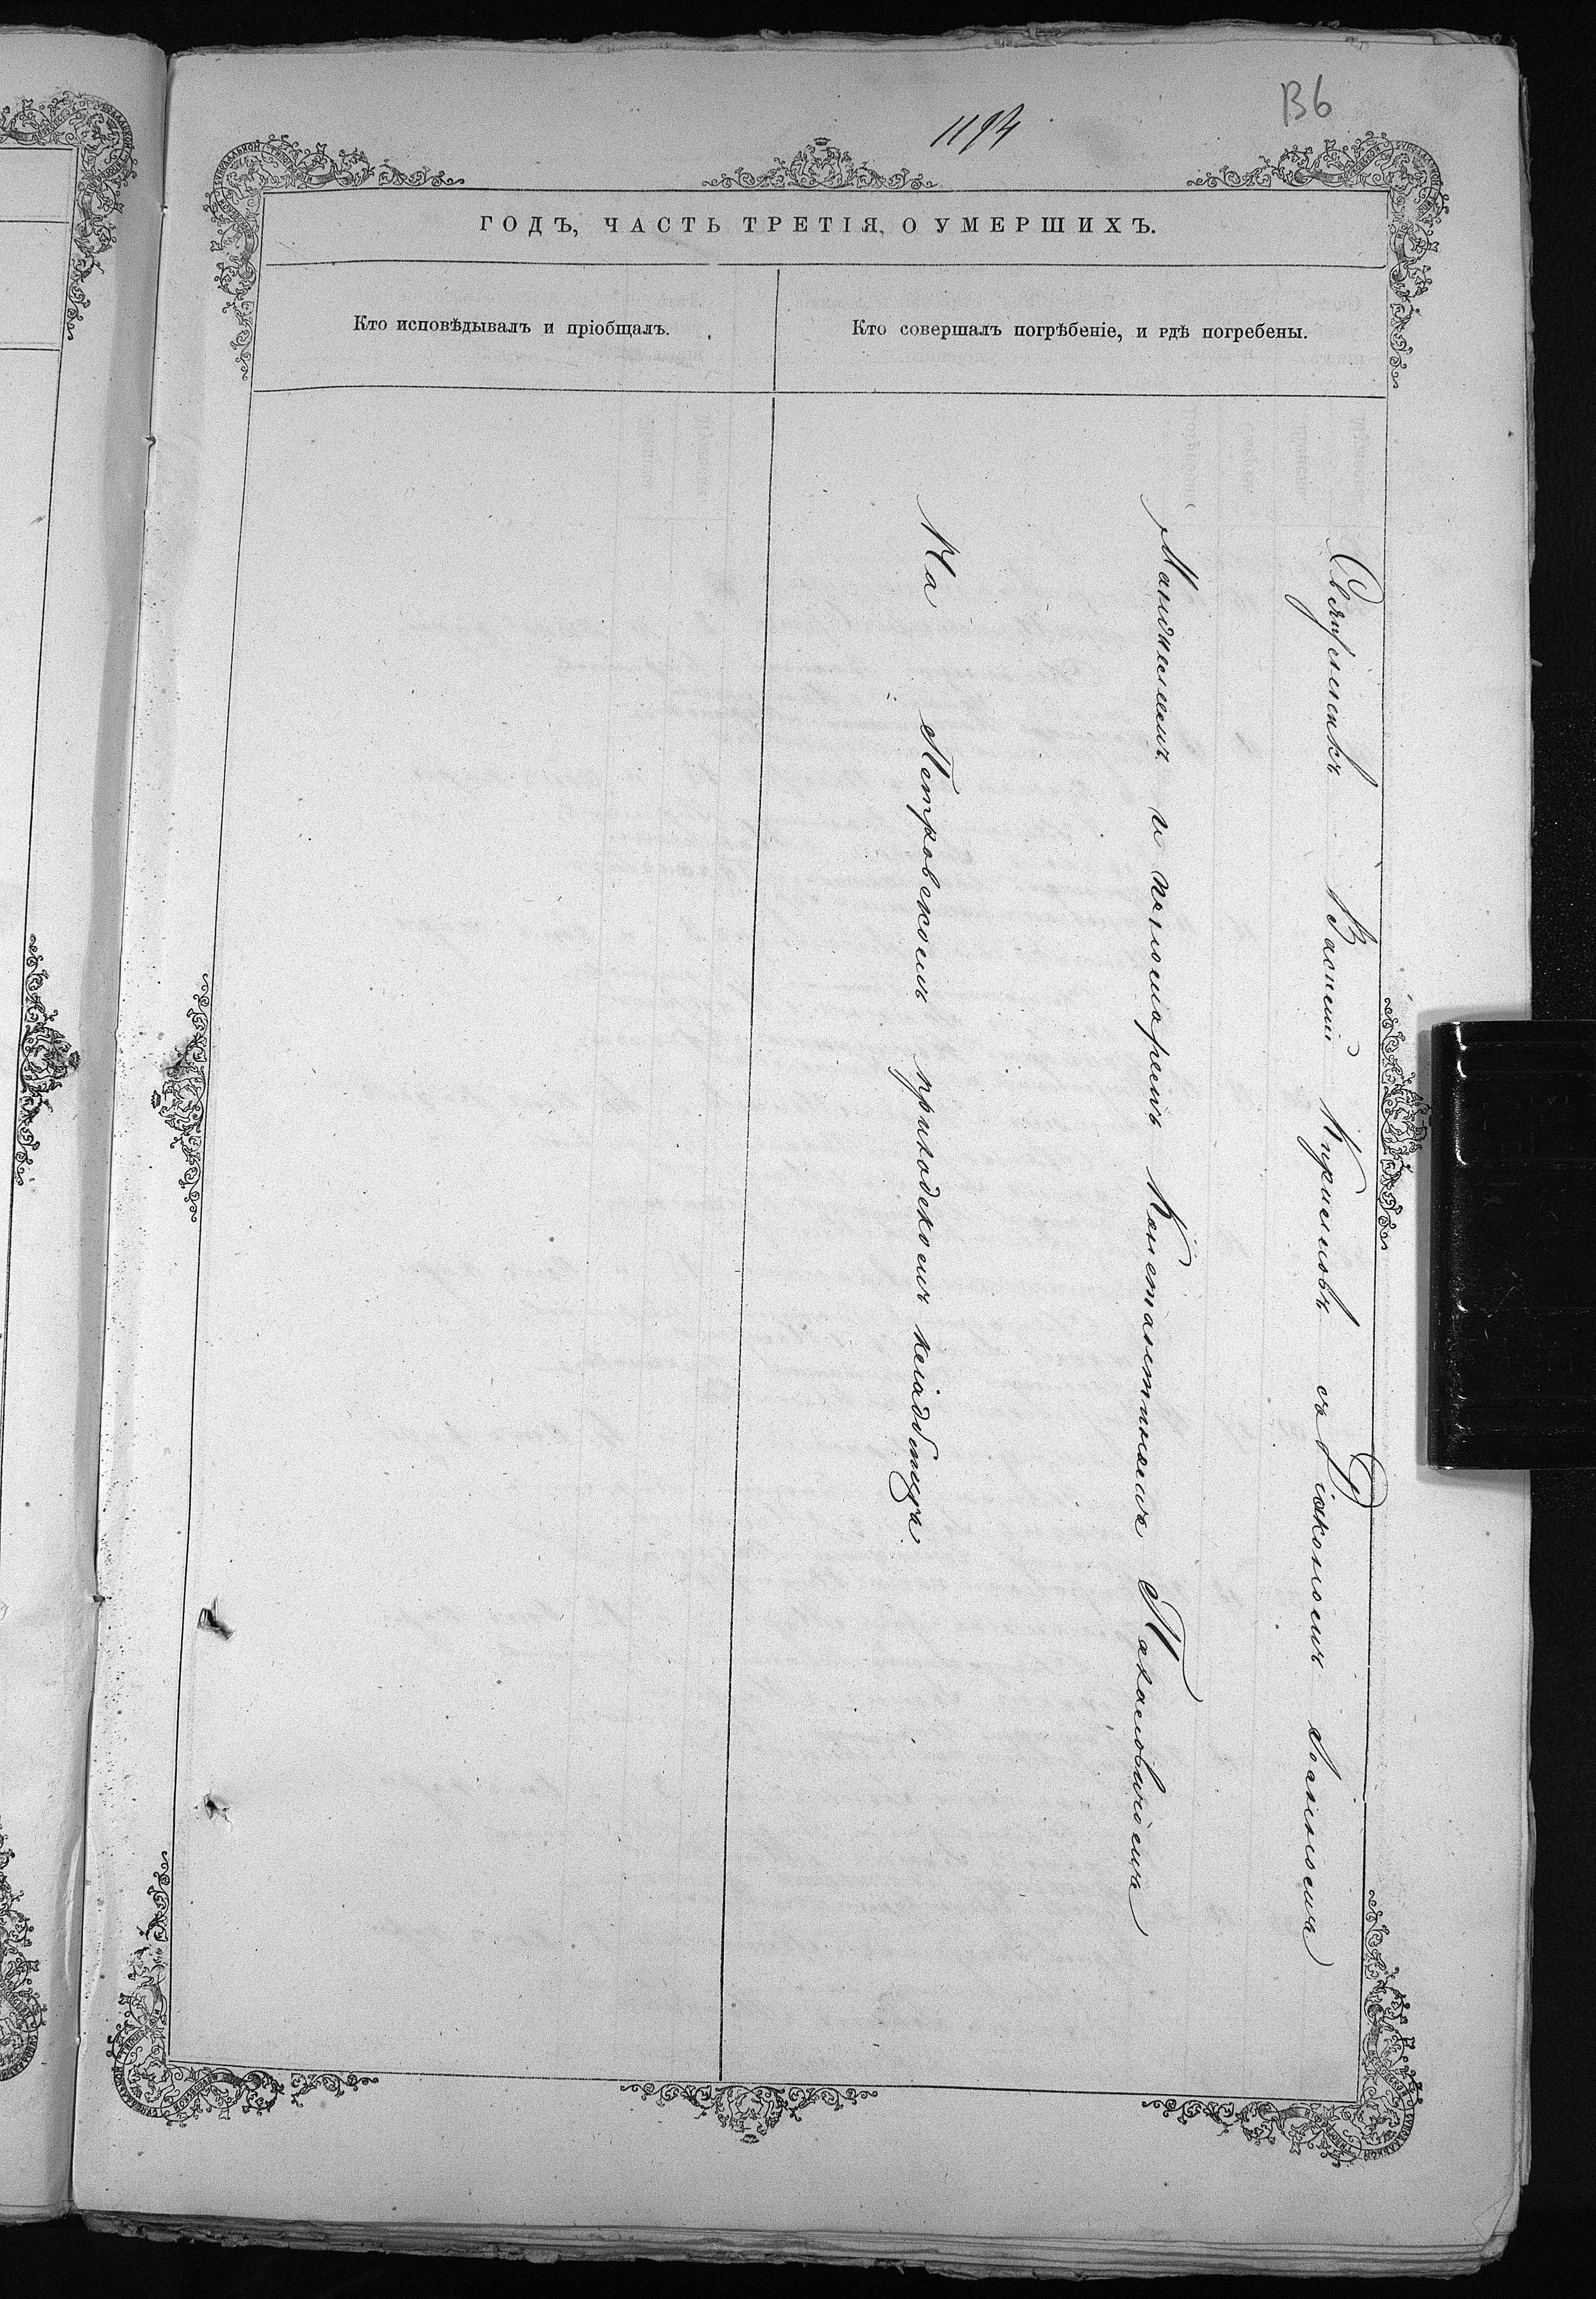 В6
1194
ГОДЪ, ЧАСТЬ ТРЕТІЯ, О УМЕРШИХЪ.
Кто исповѣдывалъ и пріобщалъ.
Кто совершалъ погрѣбеніе, и гдѣ погребены.
Священникъ Василій Кириловъ съ Діакономъ Іоанномъ
и пономаремъ Константиномъ
На Петровскомъ приходскомъ кладбищѣ.